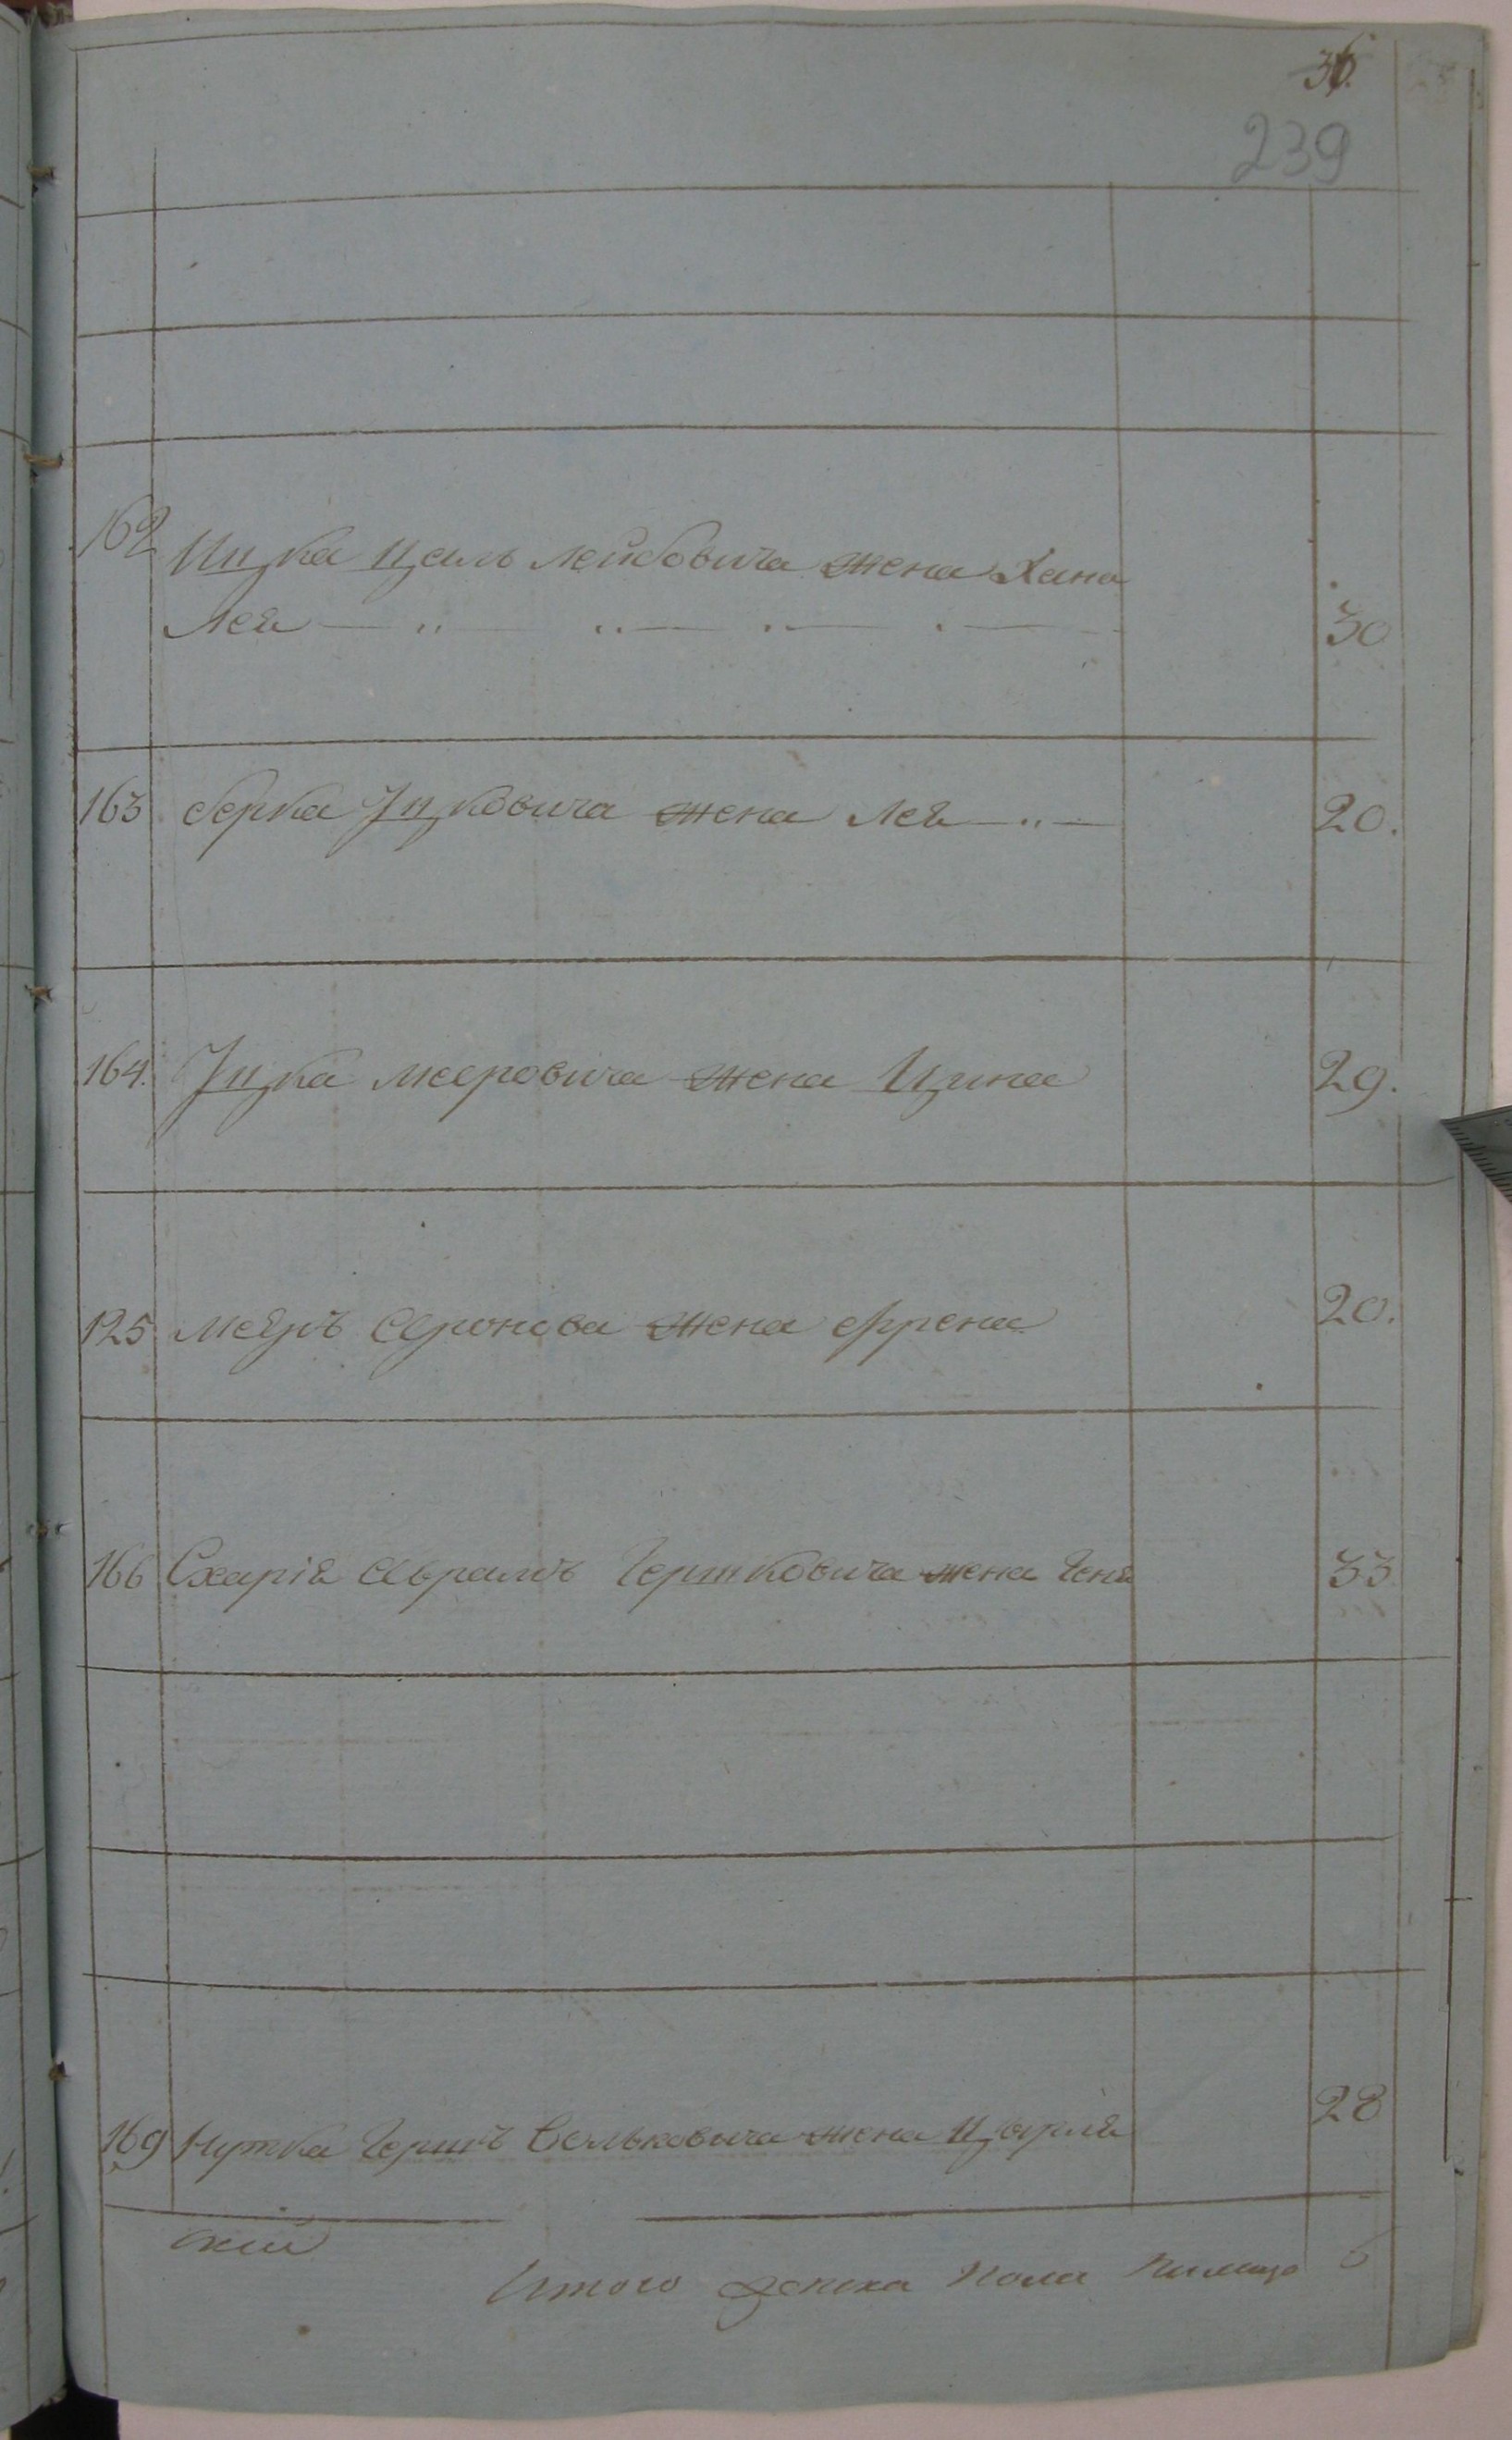 36.
239
162 Ицка Цаль Лейбовича жена Хана
Лея — „ — „ — „ — „ — 30
163 Берка Іцковича жена Лея — „ — 20.
164. Іцка Мееровича жена Цина 29.
125 Меяръ Аронова жена Френа 20.
166 Схарія Абрамъ Гершковича жена Геня 33
169 Нутка Гершъ Вольковича жена Цырля 28
ской
Итого женска пола на лицо 6